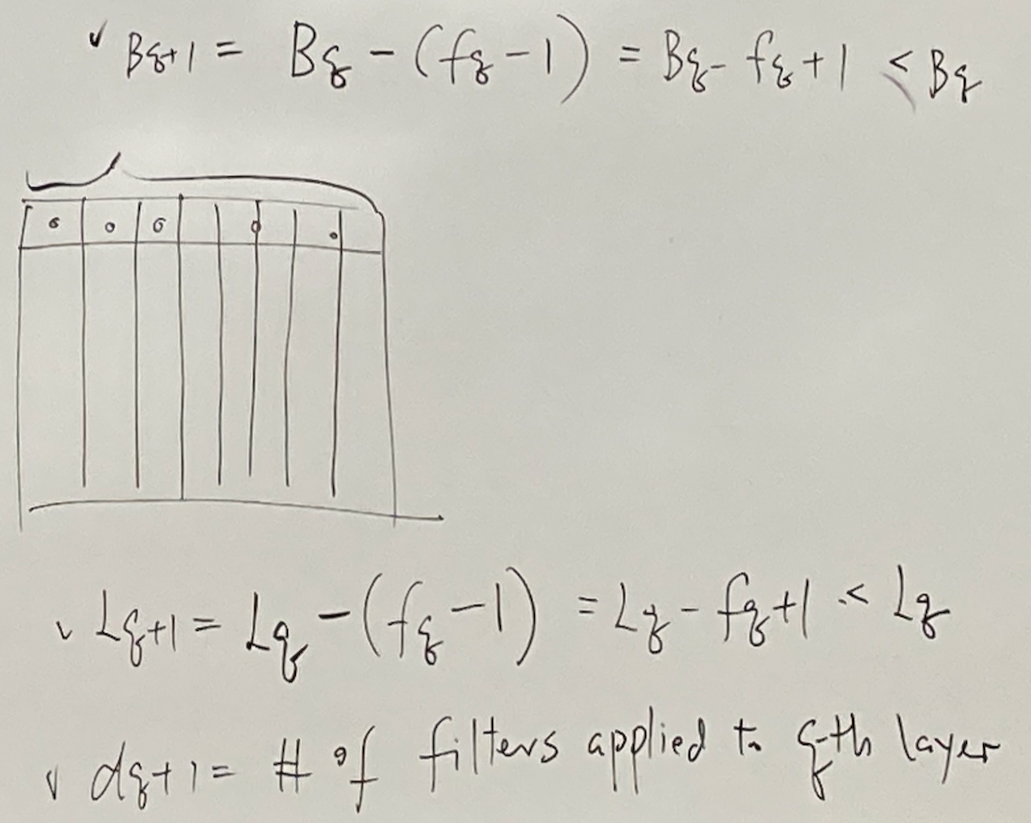 ✓ Bq+1 = Bq - (fq - 1) = Bq - fq + 1 < Bq
✓ Lq+1 = Lq - (fq - 1) = Lq - fq + 1 < Lq
✓ dq+1 = # of filters applied to q-th layer